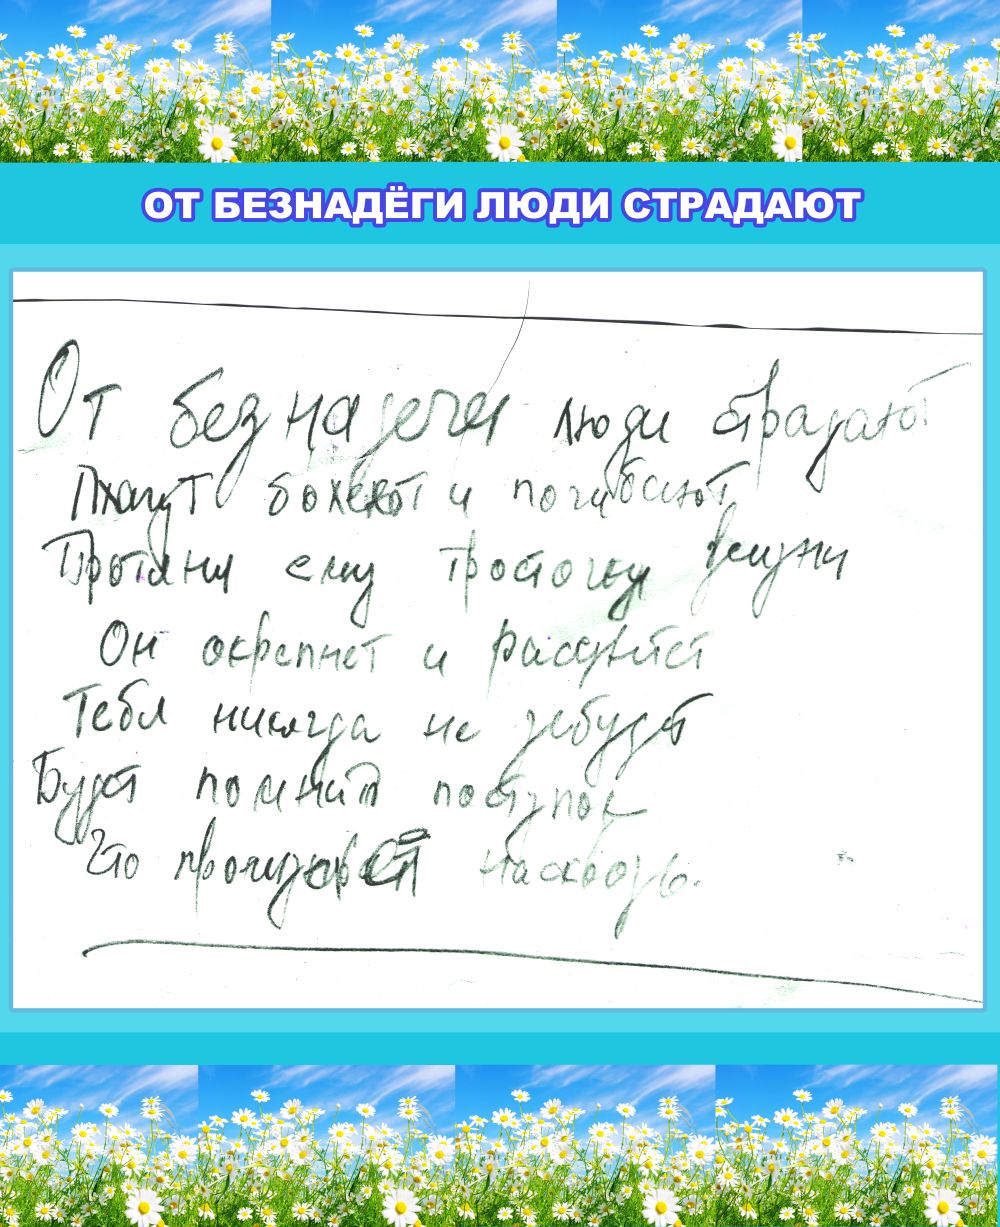 ОТ БЕЗНАДЁГИ ЛЮДИ СТРАДАЮТ
От безнадеги люди страдают
Плачут болеют и погибают
Протяни ему тросточку жизни
Он окрепнет и расцветет
Тебя никогда не забудет
Будет помнить поступок
Что пронизывает насквозь.